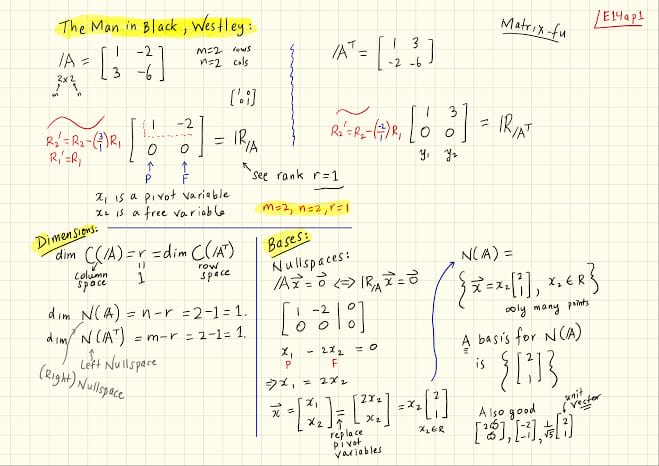 The Man in Black, Westley:
Matrix-fu
E14ap1
/A = [1 -2; 3 -6]
2x2
m n
m=2 rows
n=2 cols
/A^T = [1 3; -2 -6]
[1 0; 0 1]
R2' = R2-(3/1)R1
R1' = R1
[1 -2; 0 0] = IR/A
P F
see rank r=1
R2' = R2-(-2/1)R1 [1 3; 0 0] = IR/A^T
y1 y2
x1 is a pivot variable
x2 is a free variable
m=2, n=2, r=1
Dimensions:
dim C(/A) = r = dim C(/A^T)
column space
1
row space
dim N(/A) = n-r = 2-1 = 1.
dim N(/A^T) = m-r = 2-1 = 1.
Left Nullspace
(Right) Nullspace
Bases:
Nullspaces:
/Ax = 0 <=> IR/A x = 0
[1 -2 | 0; 0 0 | 0]
x1 - 2x2 = 0
P F
=> x1 = 2x2
x = [x1; x2] = [2x2; x2] = x2 [2; 1]
x2∈R
replace
pivot
variables
N(/A) =
{ x = x2 [2; 1], x2∈R }
∞ly many points
A basis for N(/A)
is { [2; 1] }
Also good
unit vector
[-2; -1], 1/√5 [2; 1]